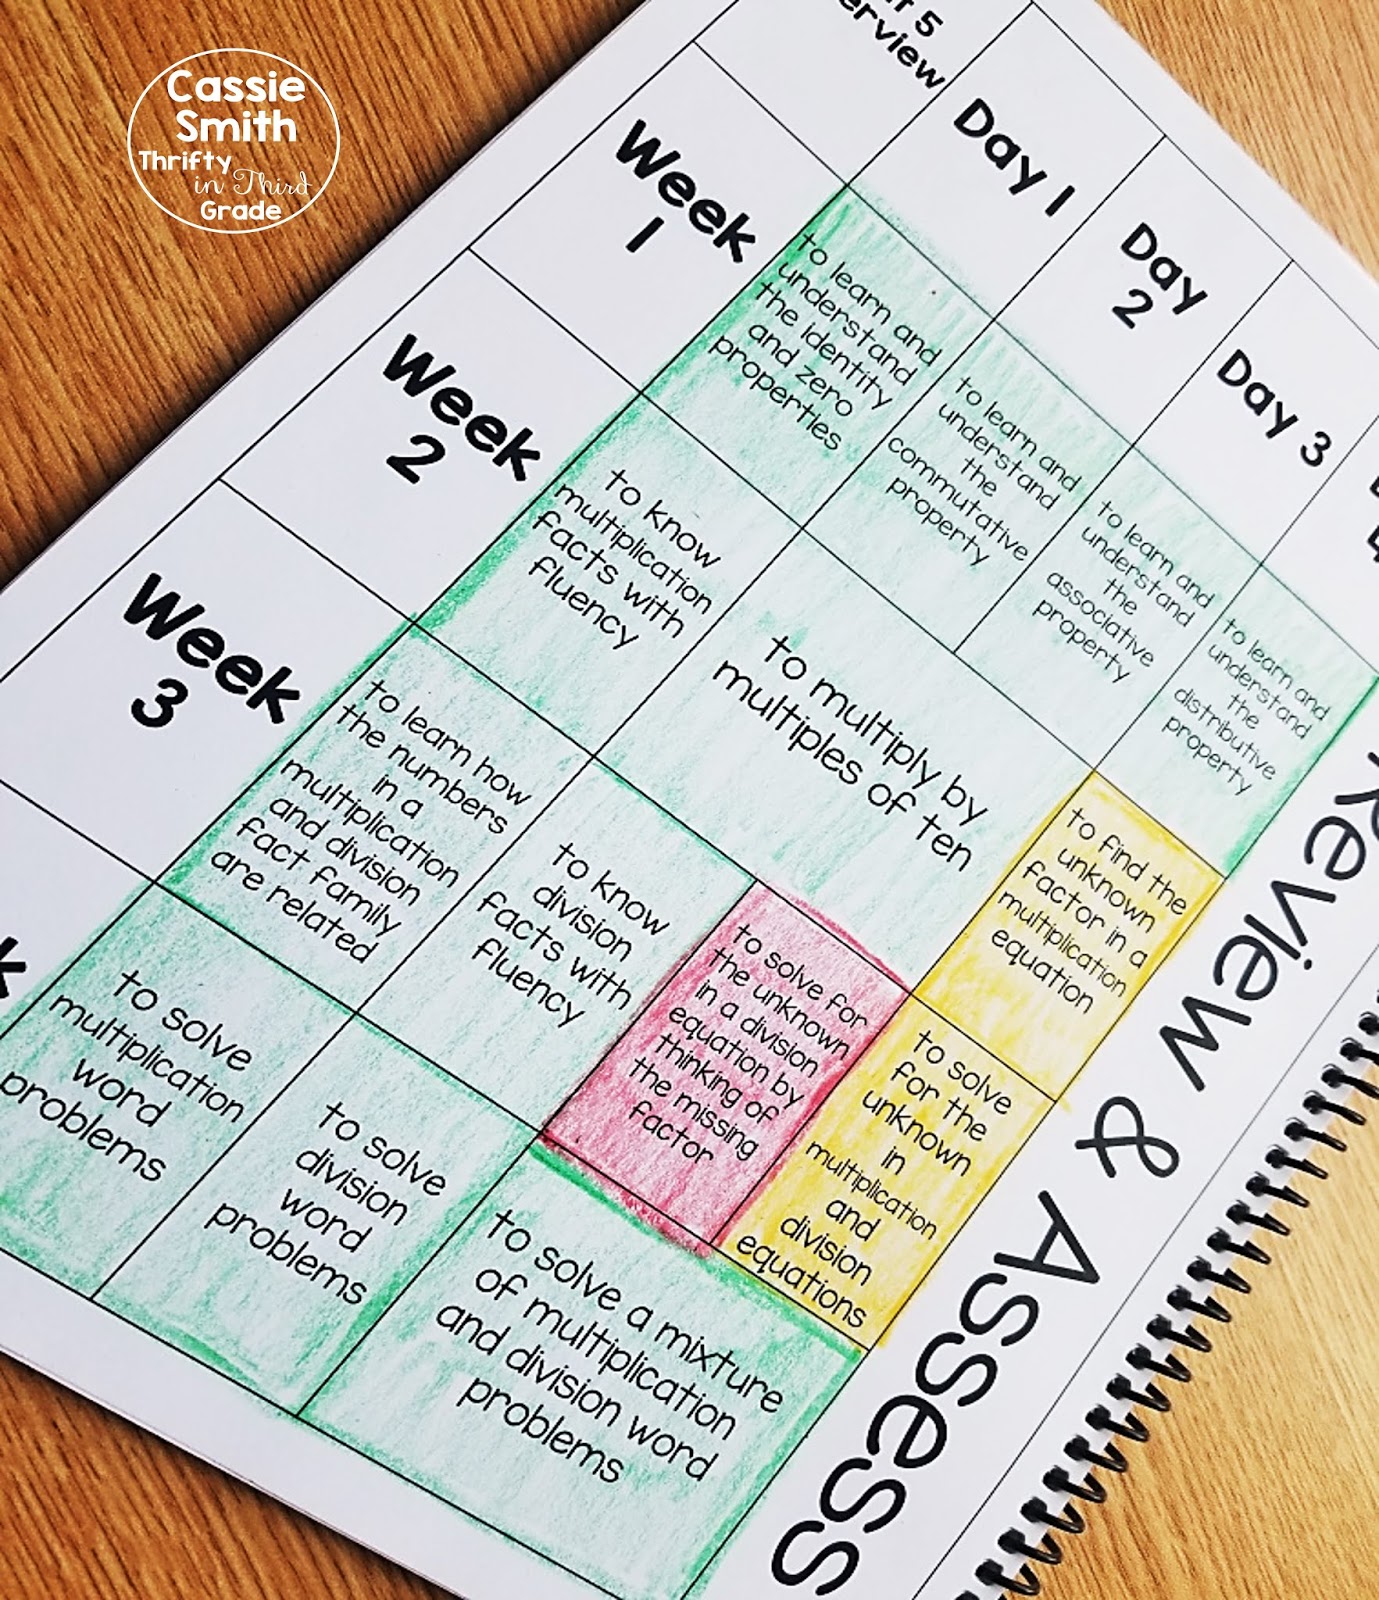 Cassie
Smith
Thrifty
in Third
Grade
5
Day 1
Day
2
Day 3
Week
1
to learn and
understand
the identity
and zero
properties
to learn and
understand
the
commutative
property
to learn and
understand
the
associative
property
to learn and
understand
the
distributive
property
Week
2
to know
multiplication
facts with
fluency
to multiply by
multiples of ten
to find the
unknown
factor in a
multiplication
equation
Week
3
to learn how
the numbers
in a
multiplication
and division
fact family
are related
to know
division
facts with
fluency
to solve for
the unknown
in a division
equation by
thinking of
the missing
factor
to solve
for the
unknown
in
multiplication
and
division
equations
to solve
multiplication
word
problems
to solve
division
word
problems
to solve a mixture
of multiplication
and division word
problems
Review & Assess